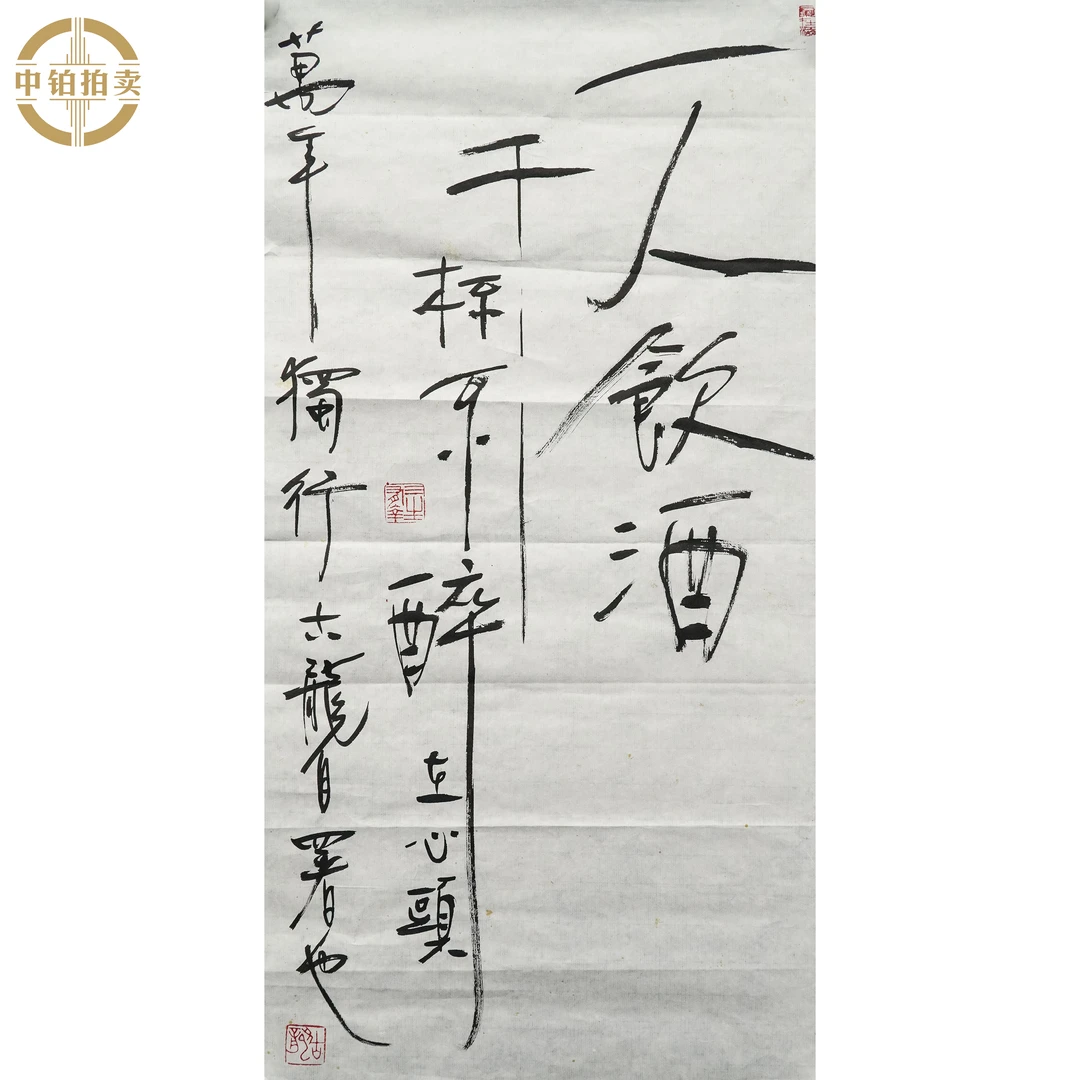 中铂拍卖
一人飲酒
千杯不醉在心頭
萬年獨行古龍自署也